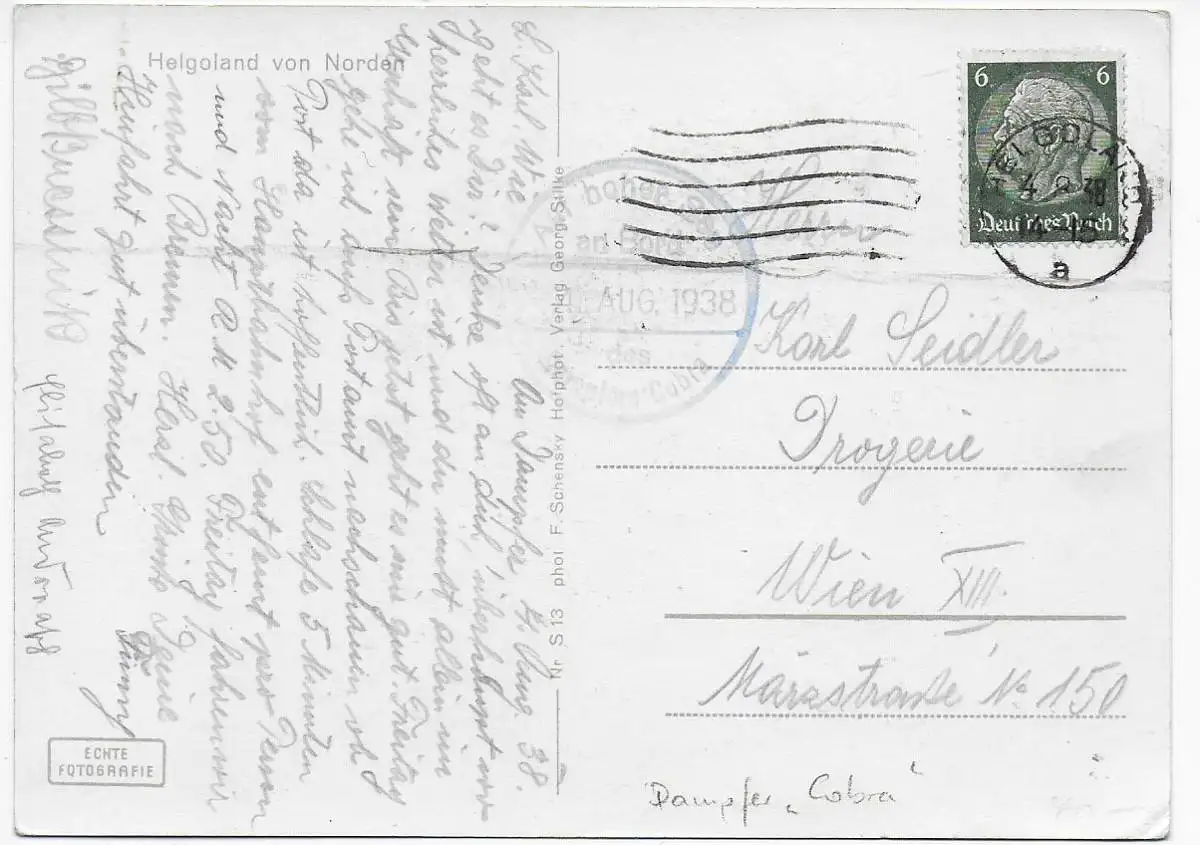 Helgoland von Norden
Am Dampfer 4. Aug. 38.
L. Karl. Wie
geht es Dir? Denke oft an dich, überhaupt wo
herrliches Wetter ist und du mußt allein im
Geschäft sein. Bis jetzt geht es mir gut. Freitag
gehe ich aufs Postamt nachschauen ob
Post da ist hoffentlich. Schlafe 5 Minuten
vom Hauptbahnhof entfernt pro Person
und Nacht R.M 2.50. Freitag fahren wir
nach Bremen. Herzl. Grüße Deine
Heinfahrt gut überstanden
Nr S 13 phot F. Schensky Hofphot Verlag Georg Stilke
ECHTE
FOTOGRAFIE
hoher See
an Bord
AUG. 1938
des
Cobra
6 6
Deutsches Reich
HELGOLAND
4.8.38
a
Herrn
Karl Seidler
Drogerie
Wien XIII.
Märzstraße No 150
Dampfer "Cobra"